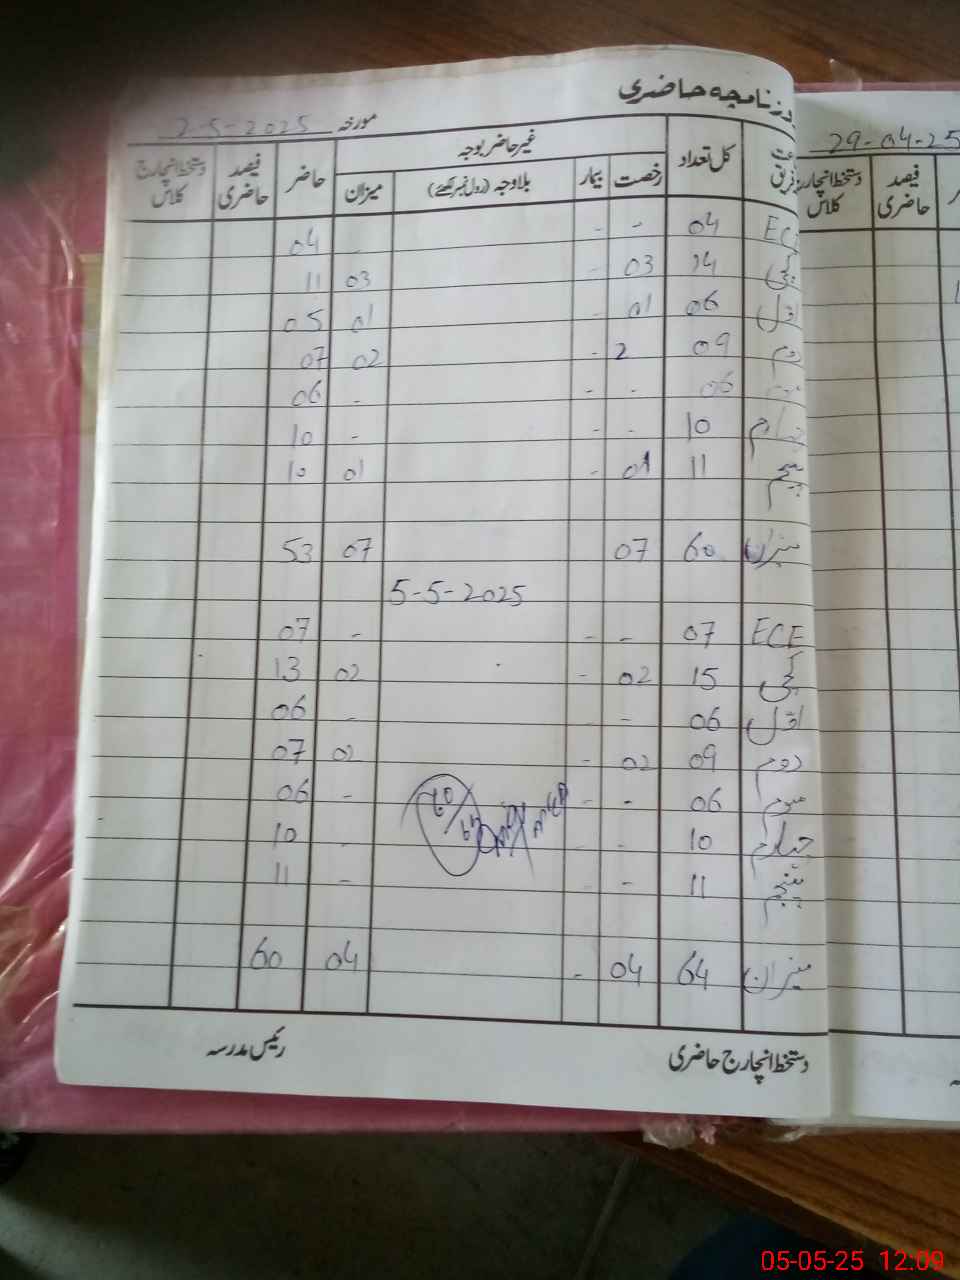 روزنامچہ حاضری
مورخہ 2-5-2025
کل تعداد غیر حاضر بوجہ حاضر فیصد حاضری دستخط انچارج کلاس
رخصت بیمار بلاوجہ (رول نمبر لکھئے) میزان
ECE 04 - - - 04
کچی 14 03 - 03 11
اول 06 01 - 01 05
دوم 09 2 - 02 07
06 - - - 06
چہارم 10 - - - 10
پنجم 11 01 - 01 10
میزان 60 07 07 53
5-5-2025
ECE 07 - - - 07
کچی 15 02 - 02 13
اول 06 - - - 06
دوم 09 02 - 02 07
سوم 06 - - - 06
چہارم 10 - - 10
پنجم 11 - - - 11
میزان 64 04 - 04 60
دستخط انچارج حاضری رئیس مدرسہ
29-04-25
دستخط انچارج کلاس فیصد حاضری
05-05-25 12:09